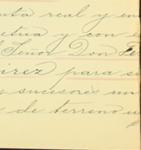 real y en
etua y con e
Señor Don
irez para s
sucesores un
de terreno u